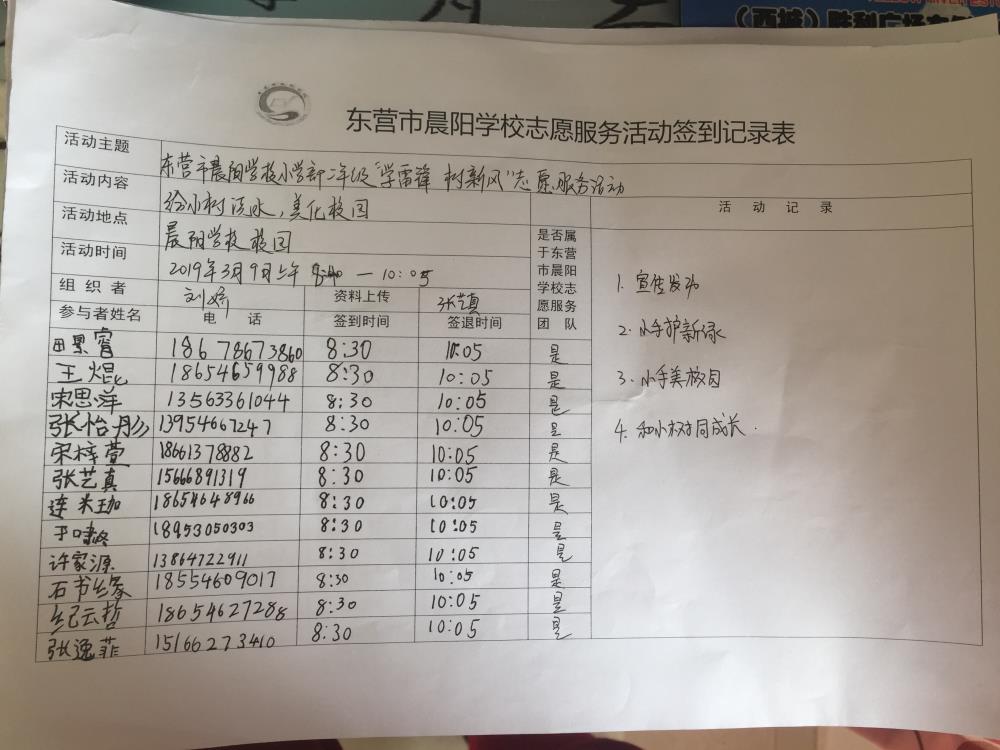 (西城)胜利广场
东营市晨阳学校志愿服务活动签到记录表
活动主题 东营市晨阳学校小学部二年级“学雷锋 树新风”志愿服务活动
活动内容 给小树浇水,美化校园
活动地点 晨阳学校校园
活动时间 2019年3月9日上午 8:30 — 10:05
组织者 刘娇 资料上传 张艺真
参与者姓名 电话 签到时间 签退时间 是否属于东营市晨阳学校志愿服务团队
田累睿 18678673860 8:30 10:05 是
王焜 18654659988 8:30 10:05 是
宋思洋 13563361044 8:30 10:05 是
张怡彤 13954667247 8:30 10:05 是
宋梓萱 18661378882 8:30 10:05 是
张艺真 15666891319 8:30 10:05 是
连米珈 18654648966 8:30 10:05 是
于啸 18953050303 8:30 10:05 是
许家源 13864722911 8:30 10:05 是
石书缘 18554609017 8:30 10:05 是
纪云哲 18654627288 8:30 10:05 是
张逸菲 15166273410 8:30 10:05 是
活动记录
1. 宣传发动
2. 小手护新绿
3. 小手美校园
4. 和小树同成长.